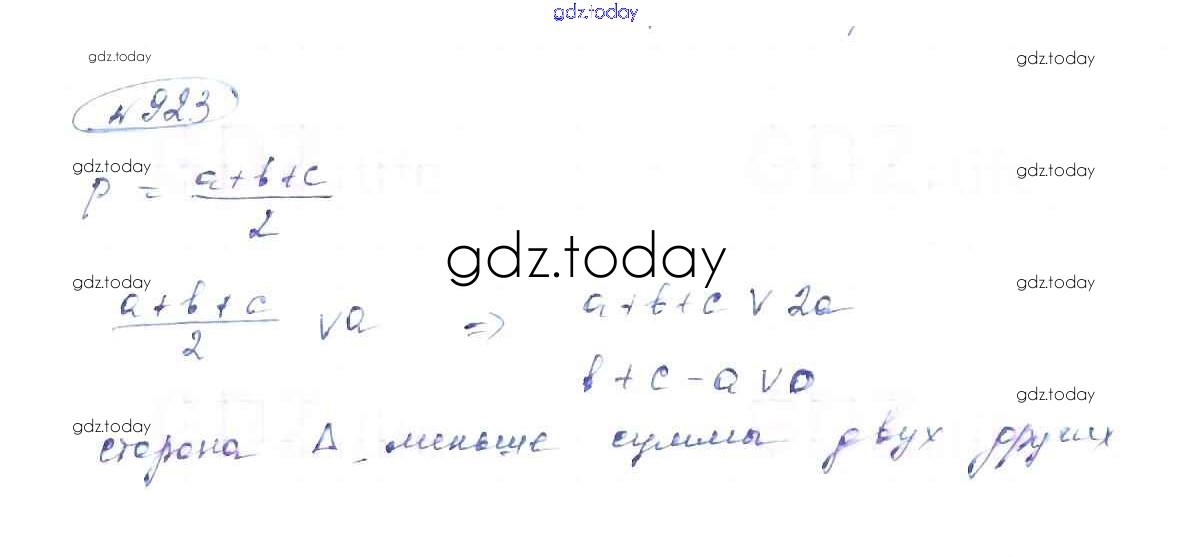 gdz.today
gdz.today gdz.today
№923
gdz.today gdz.today
p = (a+b+c)/2
gdz.today
gdz.today gdz.today
(a+b+c)/2 ∨ a => a+b+c ∨ 2a
b+c-a ∨ 0
gdz.today
gdz.today
сторона Δ меньше суммы двух других